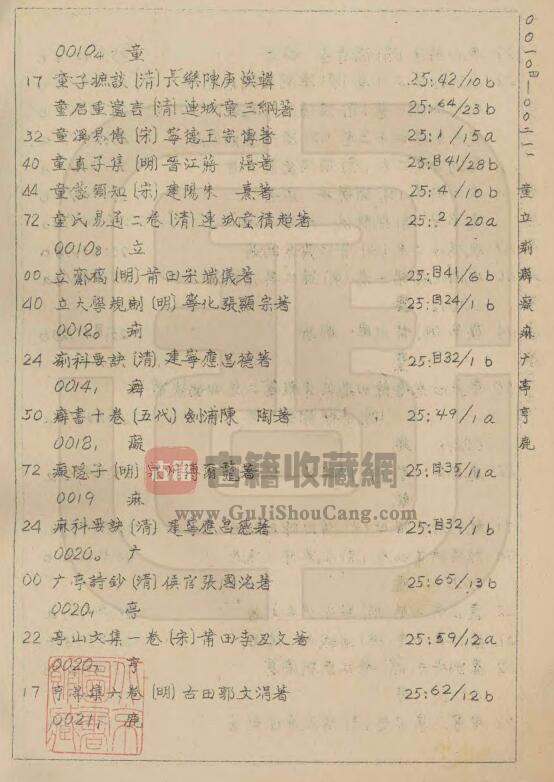 0010₄ 童
17 童子摭談 (清) 長樂陳庚煥輯 25:42/10b
童君重𥧲言 (清) 連城童三綱著 25:64/23b
32 童溪易傳 (宋) 寧德王宗傳著 25:1/15a
40 童真子集 (明) 晉江蔣 著 25:目41/28b
44 童蒙須知 (宋) 建陽朱 熹著 25:4/10b
72 童氏易通二卷 (清) 連城童積超著 25:2/20a
0010₈ 立
00 立齋稿 (明) 莆田宋端儀著 25:目41/6b
40 立大學規制 (明) 寧化張顯宗著 25:目24/1b
0012₀ 痢
24 痢科要訣 (清) 建寧應昌德著 25:目32/1b
0014₁ 癖
50 癖書十卷 (五代) 劍浦陳 陶著 25:49/1a
0018₁ 癡
72 癡隱子 (明) 龍著 25:目35/11a
0019 麻
24 麻科要訣 (清) 建寧應昌德著 25:目32/1b
0020₀ 亠
00 亠亭詩鈔 (清) 侯官張國洺著 25:65/13b
0020₁ 亭
22 亭山文集一卷 (宋) 莆田李丑文著 25:59/12a
0020₇ 亨
17 亨帚集六卷 (明) 古田郭文涓著 25:62/12b
0021₁ 鹿
古籍 書籍收藏網
www.GuJiShouCang.com
0010四—0021一
童立痢癖癡麻亠亭亨鹿